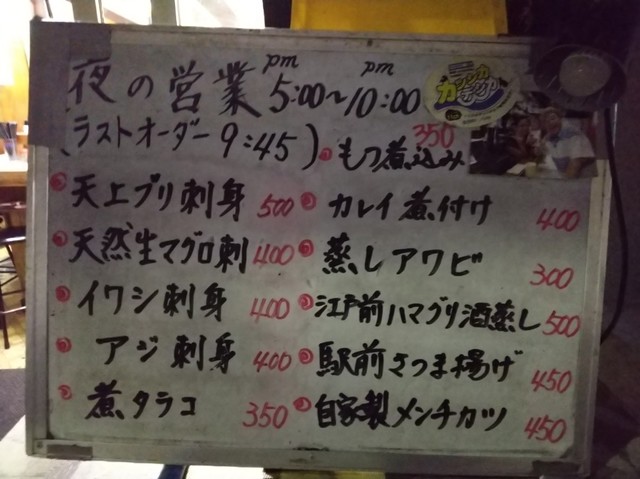 夜の営業 pm 5:00~ pm 10:00
(ラストオーダー 9:45)
もつ煮込み 350
天上ブリ刺身 500
天然生マグロ刺 400
イワシ刺身 400
アジ刺身 400
煮タラコ 350
カレイ煮付け 400
蒸しアワビ 300
江戸前ハマグリ酒蒸し 500
駅前さつま揚げ 450
自家製メンチカツ 450